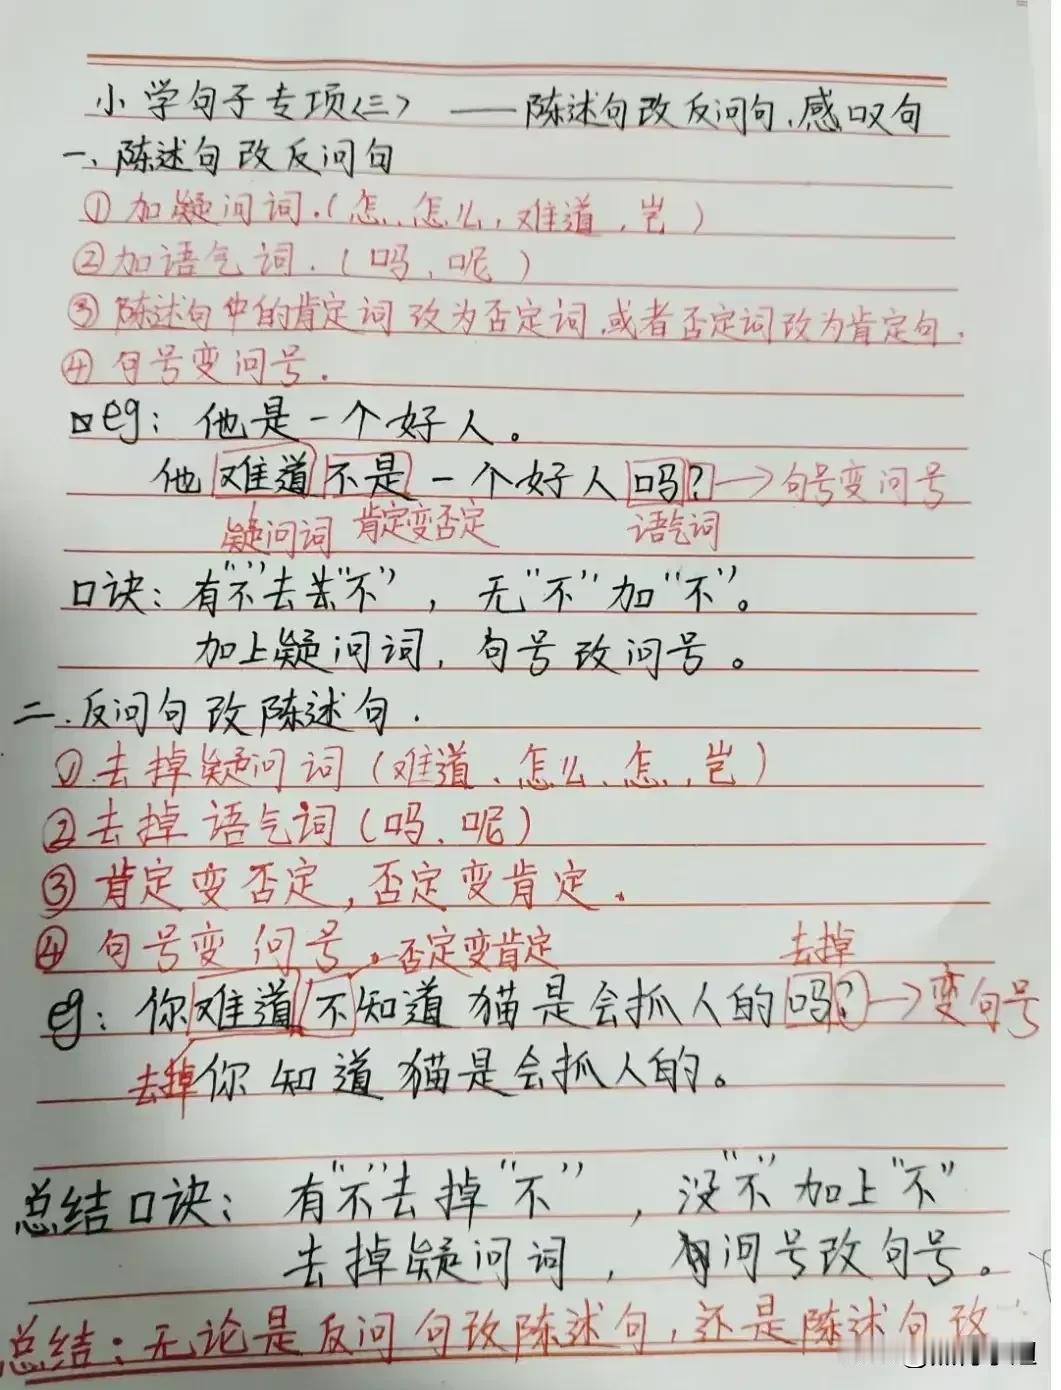 小学句子专项(三) ——陈述句改反问句、感叹句
一、陈述句改反问句
①加疑问词.(怎、怎么,难道,岂)
②加语气词.(吗、呢)
③陈述句中的肯定词改为否定词.或者否定词改为肯定句.
④句号变问号.
eg:他是一个好人。
他难道不是一个好人吗?→句号变问号
疑问词 肯定变否定 语气词
口诀:有"不"去"不",无"不"加"不"。
加上疑问词,句号改问号。
二.反问句改陈述句.
①去掉疑问词(难道、怎么、怎、岂)
②去掉语气词(吗、呢)
③肯定变否定,否定变肯定.
④句号变问号. 否定变肯定 去掉
eg:你难道不知道猫是会抓人的吗?→变句号
去掉 你知道猫是会抓人的。
总结口诀:有"不"去掉"不",没"不"加上"不"
去掉疑问词,问号改句号。
总结:无论是反问句改陈述句,还是陈述句改